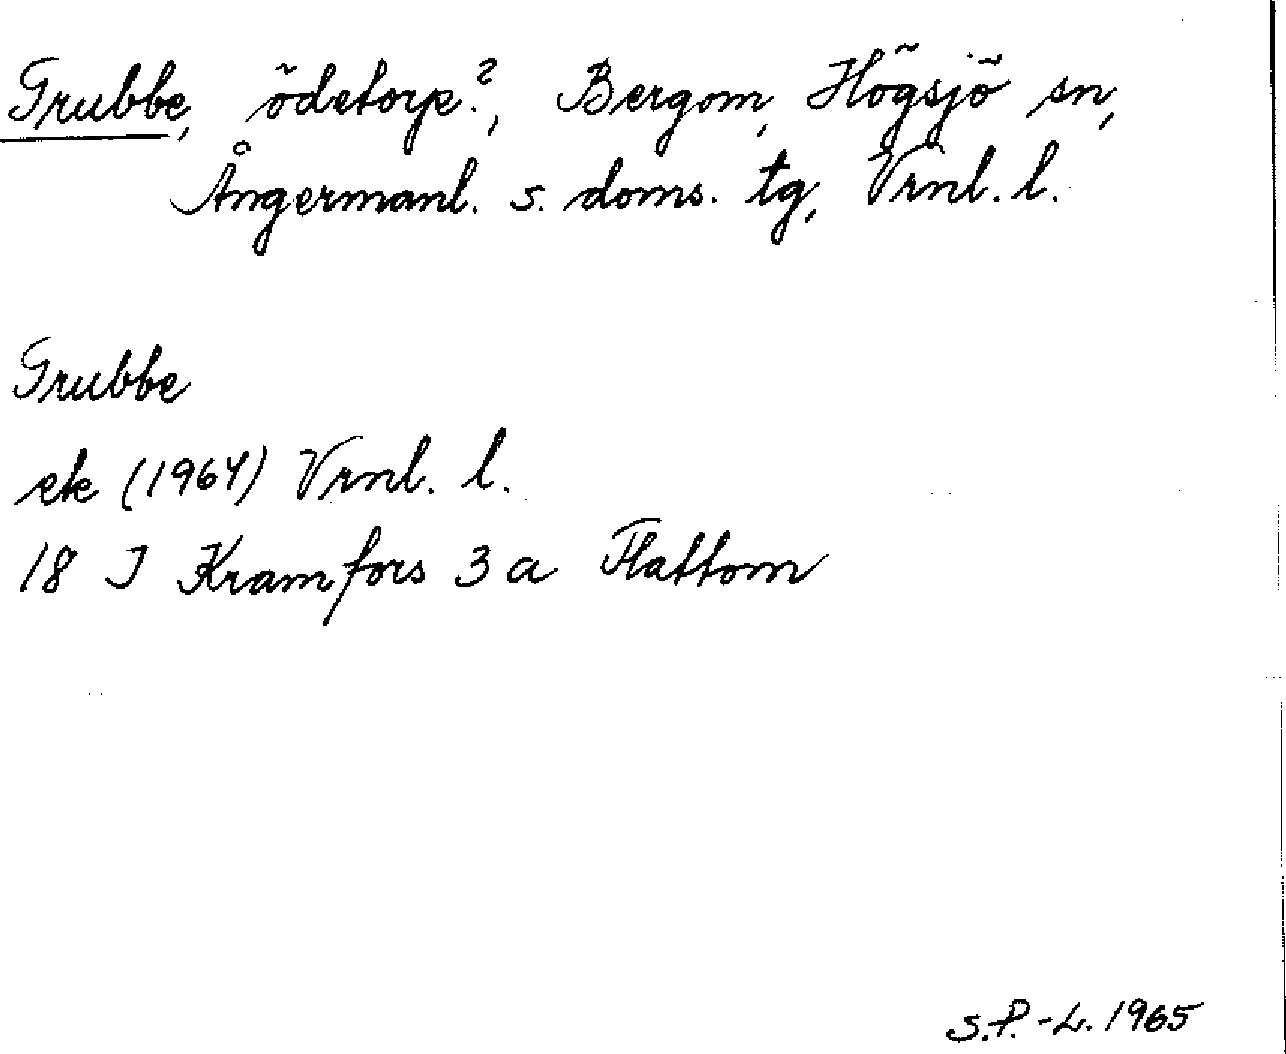 Grubbe, ödetorp?, Bergom, Högsjö sn,
Ångermanl. s. doms. tg, Vrnl. l.
Grubbe
ek (1964) Vrnl. l.
18 I Kramfors 3 a Flattom
S.P.-L. 1965